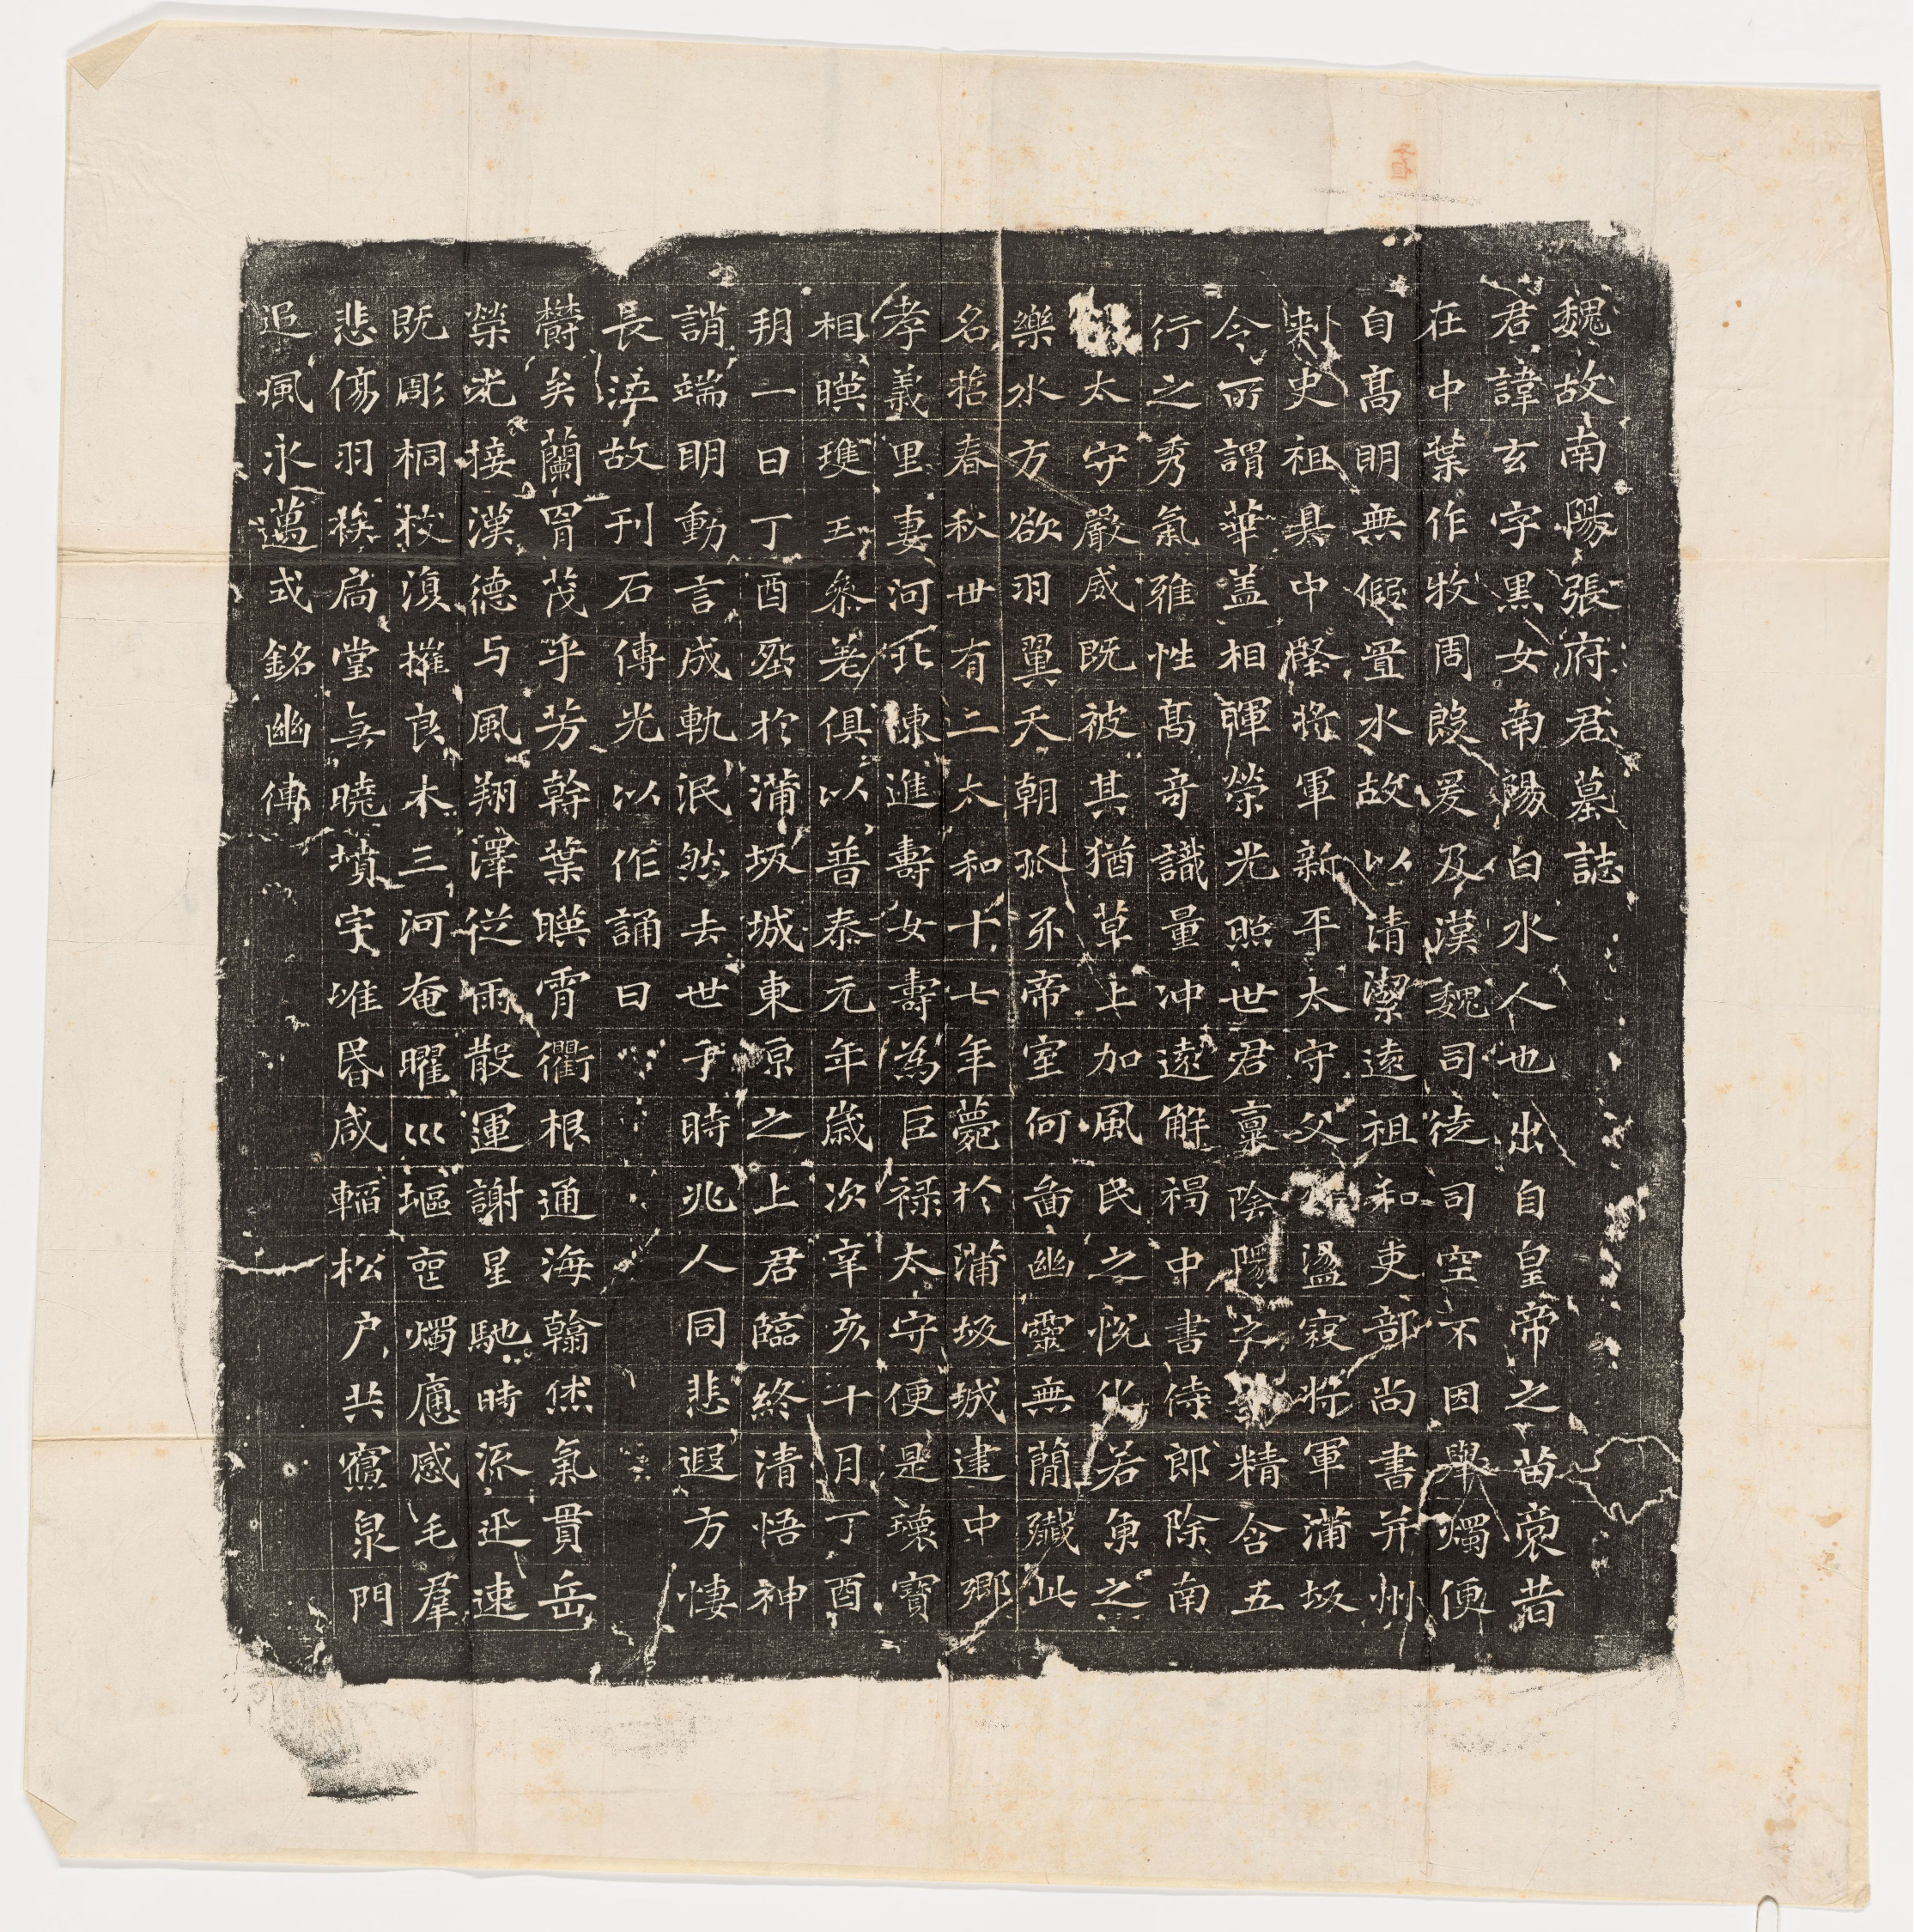 魏故南陽張府君墓誌
君諱玄字黑女南陽白水人也出自皇帝之苗裔昔
在中葉作牧周殷爰及漢魏司徒司空不因舉燭便
自高明無假置水故以清潔遠祖和吏部尚書并州
刾史祖具中堅將軍新平太守父盪寇将軍蒲坂
令所謂華蓋相暉榮光照世君稟陰陽之精含五
行之秀氣雅性高奇識量沖遠解褐中書侍郎除南
太守嚴威既被其猶草上加風民之悅化若魚之
樂水方欲羽翼天朝抓牙帝室何啚幽靈無簡殲此
名哲春秋卅有二太和十七年薨於蒲坂城建中鄉
孝義里妻河北陳進壽女壽為巨祿太守便是瓌寶
相暎瓊玉參差俱以普泰元年歲次辛亥十月丁酉
朔一日丁酉葬於蒲坂城東原之上君臨終清悟神
誚端明動言成軌泯然去世于時兆人同悲遐方悽
長泣故刊石傳光以作誦曰
鬱矣蘭胄茂乎芳幹葉暎霄衢根通海翰烋氣貫岳
榮光接漢德与風翔澤從雨散運謝星馳時流迅速
既彫桐枝復摧良木三河奄曜巛塸喪燭痛感毛群
悲傷羽族扃堂無曉墳宇唯昏咸輼松戶共寢泉門
追風永邁式銘幽傳